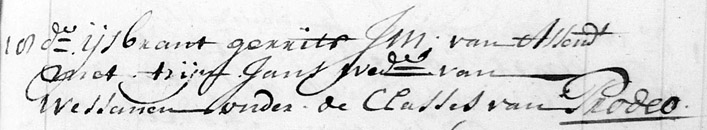 18 de: ijsbrant gerrits J.M. van Assend
met trijn Jans wede van
Wessanen onder de Classes van Prodeo.